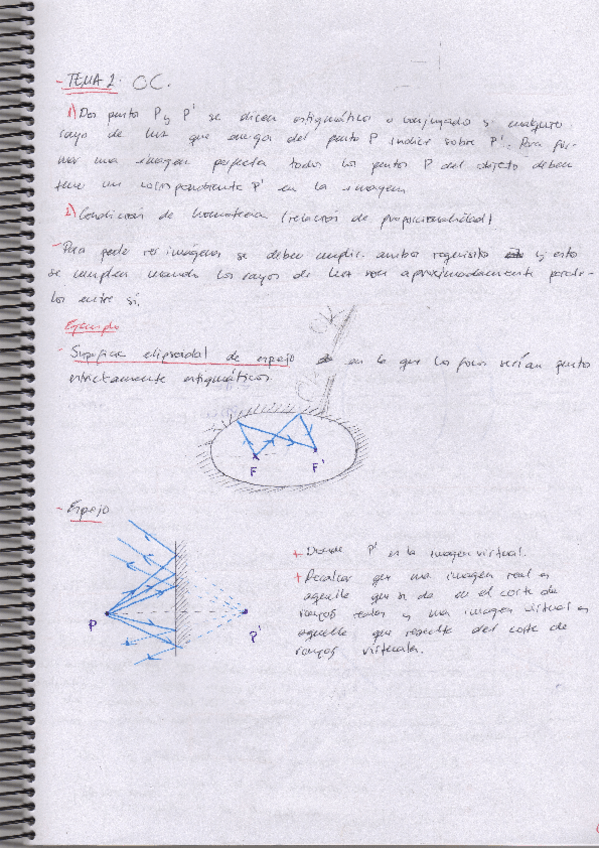 - TEMA 2. OC.
1) Dos puntos P y P' se dicen estigmáticos o conjugados si cualquier
rayo de luz que salga del punto P incide sobre P'. Para for-
mar una imagen perfecta todos los puntos P del objeto deben
tener un correspondiente P' en la imagen
2) Condición de homotecia (relación de proporcionalidad)
- Para poder ver imágenes se deben cumplir ambos requisito y esto
se cumplen cuando los rayos de luz son aproximadamente parale-
los entre sí.
Ejemplo
- Superficie elipsoidal de espejo en la que los focos serían puntos
estrictamente estigmáticos.
F F'
- Espejo
P P'
+ Donde P' es la imagen virtual.
+ Recalcar que una imagen real es
aquella que se da en el corte de
rayos reales y una imagen virtual es
aquella que resulta del corte de
rayos virtuales.